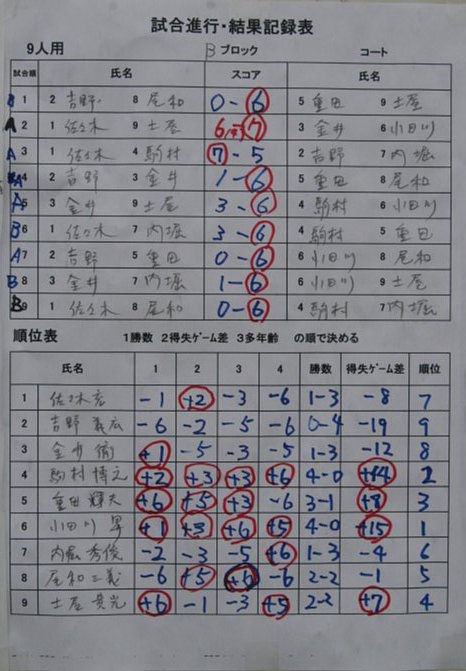 試合進行・結果記録表
9人用 Bブロック コート
試合順 氏名 スコア 氏名
1 2 吉野 8 尾和 0-6 5 重田 9 土屋
A 2 1 佐々木 9 土屋 6 7 3 金井 6 小田川
A 3 1 佐々木 4 駒村 7-5 2 吉野 7 内堀
A 4 2 吉野 3 金井 1-6 5 重田 8 尾和
A 5 3 金井 9 土屋 3-6 4 駒村 6 小田川
B 6 1 佐々木 7 内堀 3-6 4 駒村 5 重田
A 7 2 吉野 5 重田 0-6 6 小田川 8 尾和
B 8 3 金井 7 内堀 1-6 6 小田川 9 土屋
B 9 1 佐々木 8 尾和 0-6 4 駒村 7 内堀
順位表 1勝数 2得失ゲーム差 3多年齢 の順で決める
氏名 1 2 3 4 勝数 得失ゲーム差 順位
1 佐々木 -1 +2 -3 -6 1-3 -8 7
2 吉野 義広 -6 -2 -5 -6 0-4 -19 9
3 金井 +1 -5 -3 -5 1-3 -12 8
4 駒村 博之 +2 +3 +3 +6 4-0 +14 2
5 重田 輝夫 +6 +5 +3 -6 3-1 +8 3
6 小田川 +1 +3 +6 +5 4-0 +15 1
7 内堀 秀俊 -2 -3 -5 +6 1-3 -4 6
8 尾和 三義 -6 +5 +6 -6 2-2 -1 5
9 土屋 +6 -1 -3 +5 2-2 +7 4